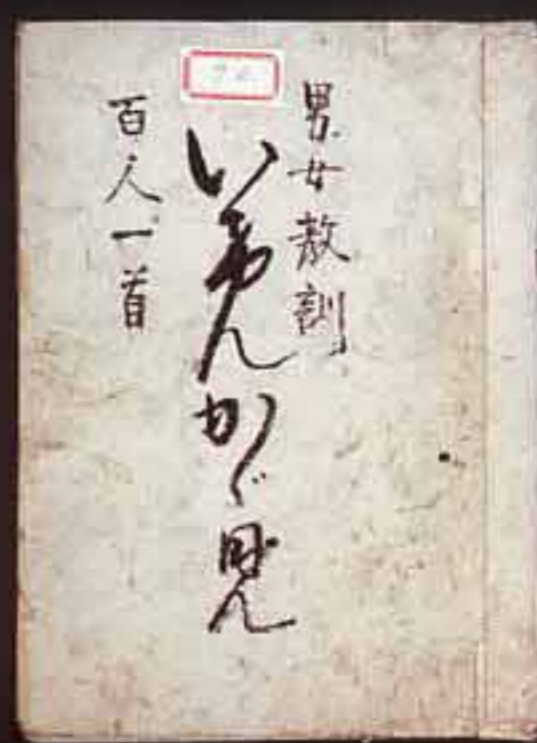 男女教訓
いけんかゞ見
百人一首